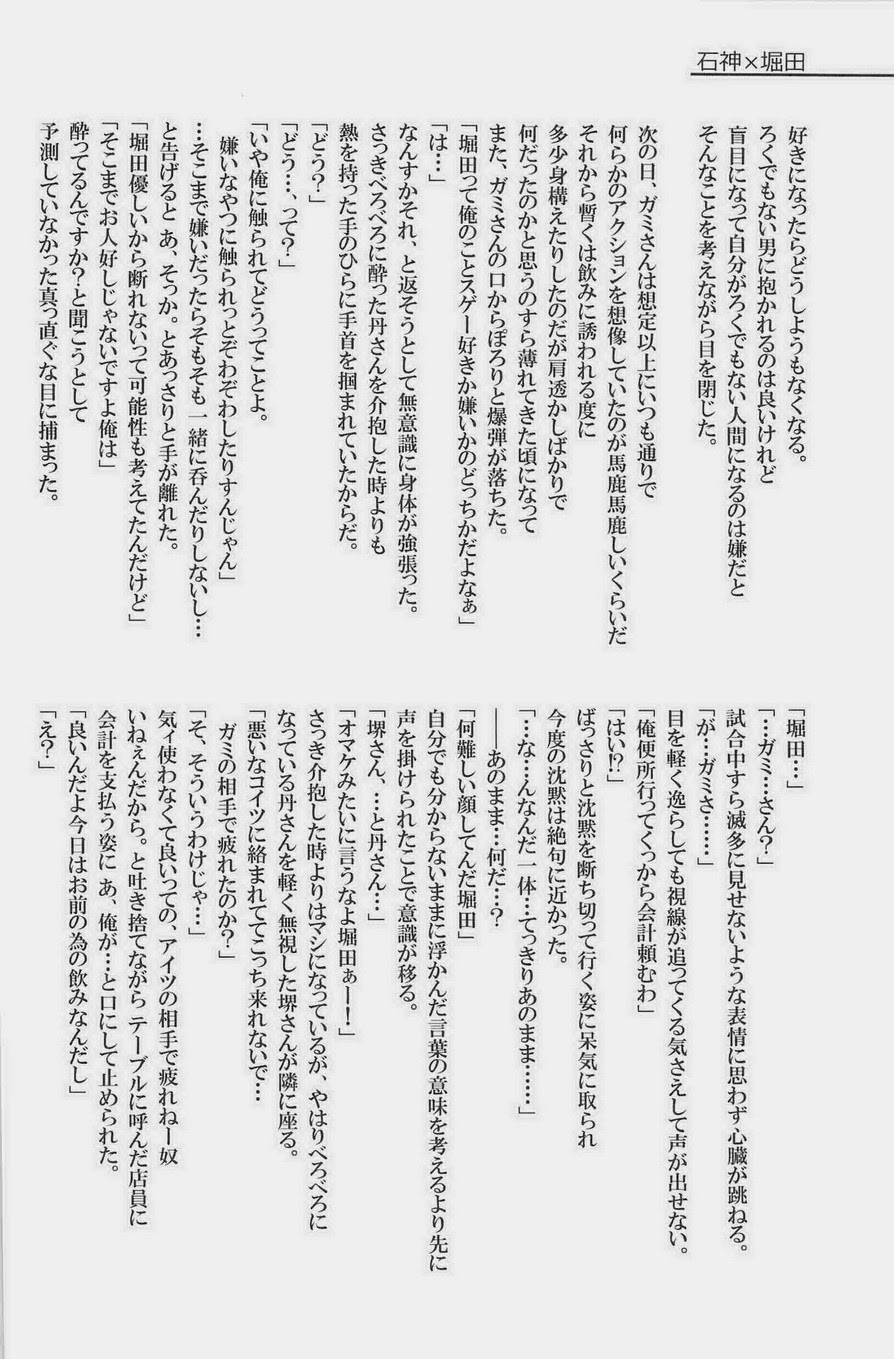 石神×堀田
好きになったらどうしようもなくなる。
ろくでもない男に抱かれるのは良いけれど
盲目になって自分がろくでもない人間になるのは嫌だと
そんなことを考えながら目を閉じた。
次の日、ガミさんは想定以上にいつも通りで
何らかのアクションを想像していたのが馬鹿馬鹿しいくらいだ
それから暫くは飲みに誘われる度に
多少身構えたりしたのだが肩透かしばかりで
何だったのかと思うのすら薄れてきた頃になって
また、ガミさんの口からぽろりと爆弾が落ちた。
「堀田って俺のことスゲー好きか嫌いかのどっちかだよなぁ」
「は…」
なんすかそれ、と返そうとして無意識に身体が強張った。
さっきべろべろに酔った丹さんを介抱した時よりも
熱を持った手のひらに手首を掴まれていたからだ。
「どう？」
「どう…、って？」
「いや俺に触られてどうってことよ。
嫌いなやつに触られっとぞわぞわしたりすんじゃん」
…そこまで嫌いだったらそもそも一緒に呑んだりしないし…
と告げると あ、そっか。とあっさりと手が離れた。
「堀田優しいから断れないって可能性も考えてたんだけど」
「そこまでお人好しじゃないですよ俺は」
酔ってるんですか？と聞こうとして
予測していなかった真っ直ぐな目に捕まった。
「堀田…」
「…ガミ…さん？」
試合中すら滅多に見せないような表情に思わず心臓が跳ねる。
「が…ガミさ……」
目を軽く逸らしても視線が追ってくる気さえして声が出せない。
「俺便所行ってくっから会計頼むわ」
「はい！？」
ばっさりと沈黙を断ち切って行く姿に呆気に取られ
今度の沈黙は絶句に近かった。
「…な…んなんだ一体…てっきりあのまま……」
――あのまま…何だ…？
「何難しい顔してんだ堀田」
自分でも分からないままに浮かんだ言葉の意味を考えるより先に
声を掛けられたことで意識が移る。
「堺さん、…と丹さん…」
「オマケみたいに言うなよ堀田ぁー！」
さっき介抱した時よりはマシになっているが、やはりべろべろに
なっている丹さんを軽く無視した堺さんが隣に座る。
「悪いなコイツに絡まれててこっち来れないで…
ガミの相手で疲れたのか？」
「そ、そういうわけじゃ…」
気ィ使わなくて良いっての、アイツの相手で疲れねー奴
いねぇんだから。と吐き捨てながら テーブルに呼んだ店員に
会計を支払う姿に あ、俺が…と口にして止められた。
「良いんだよ今日はお前の為の飲みなんだし」
「え？」